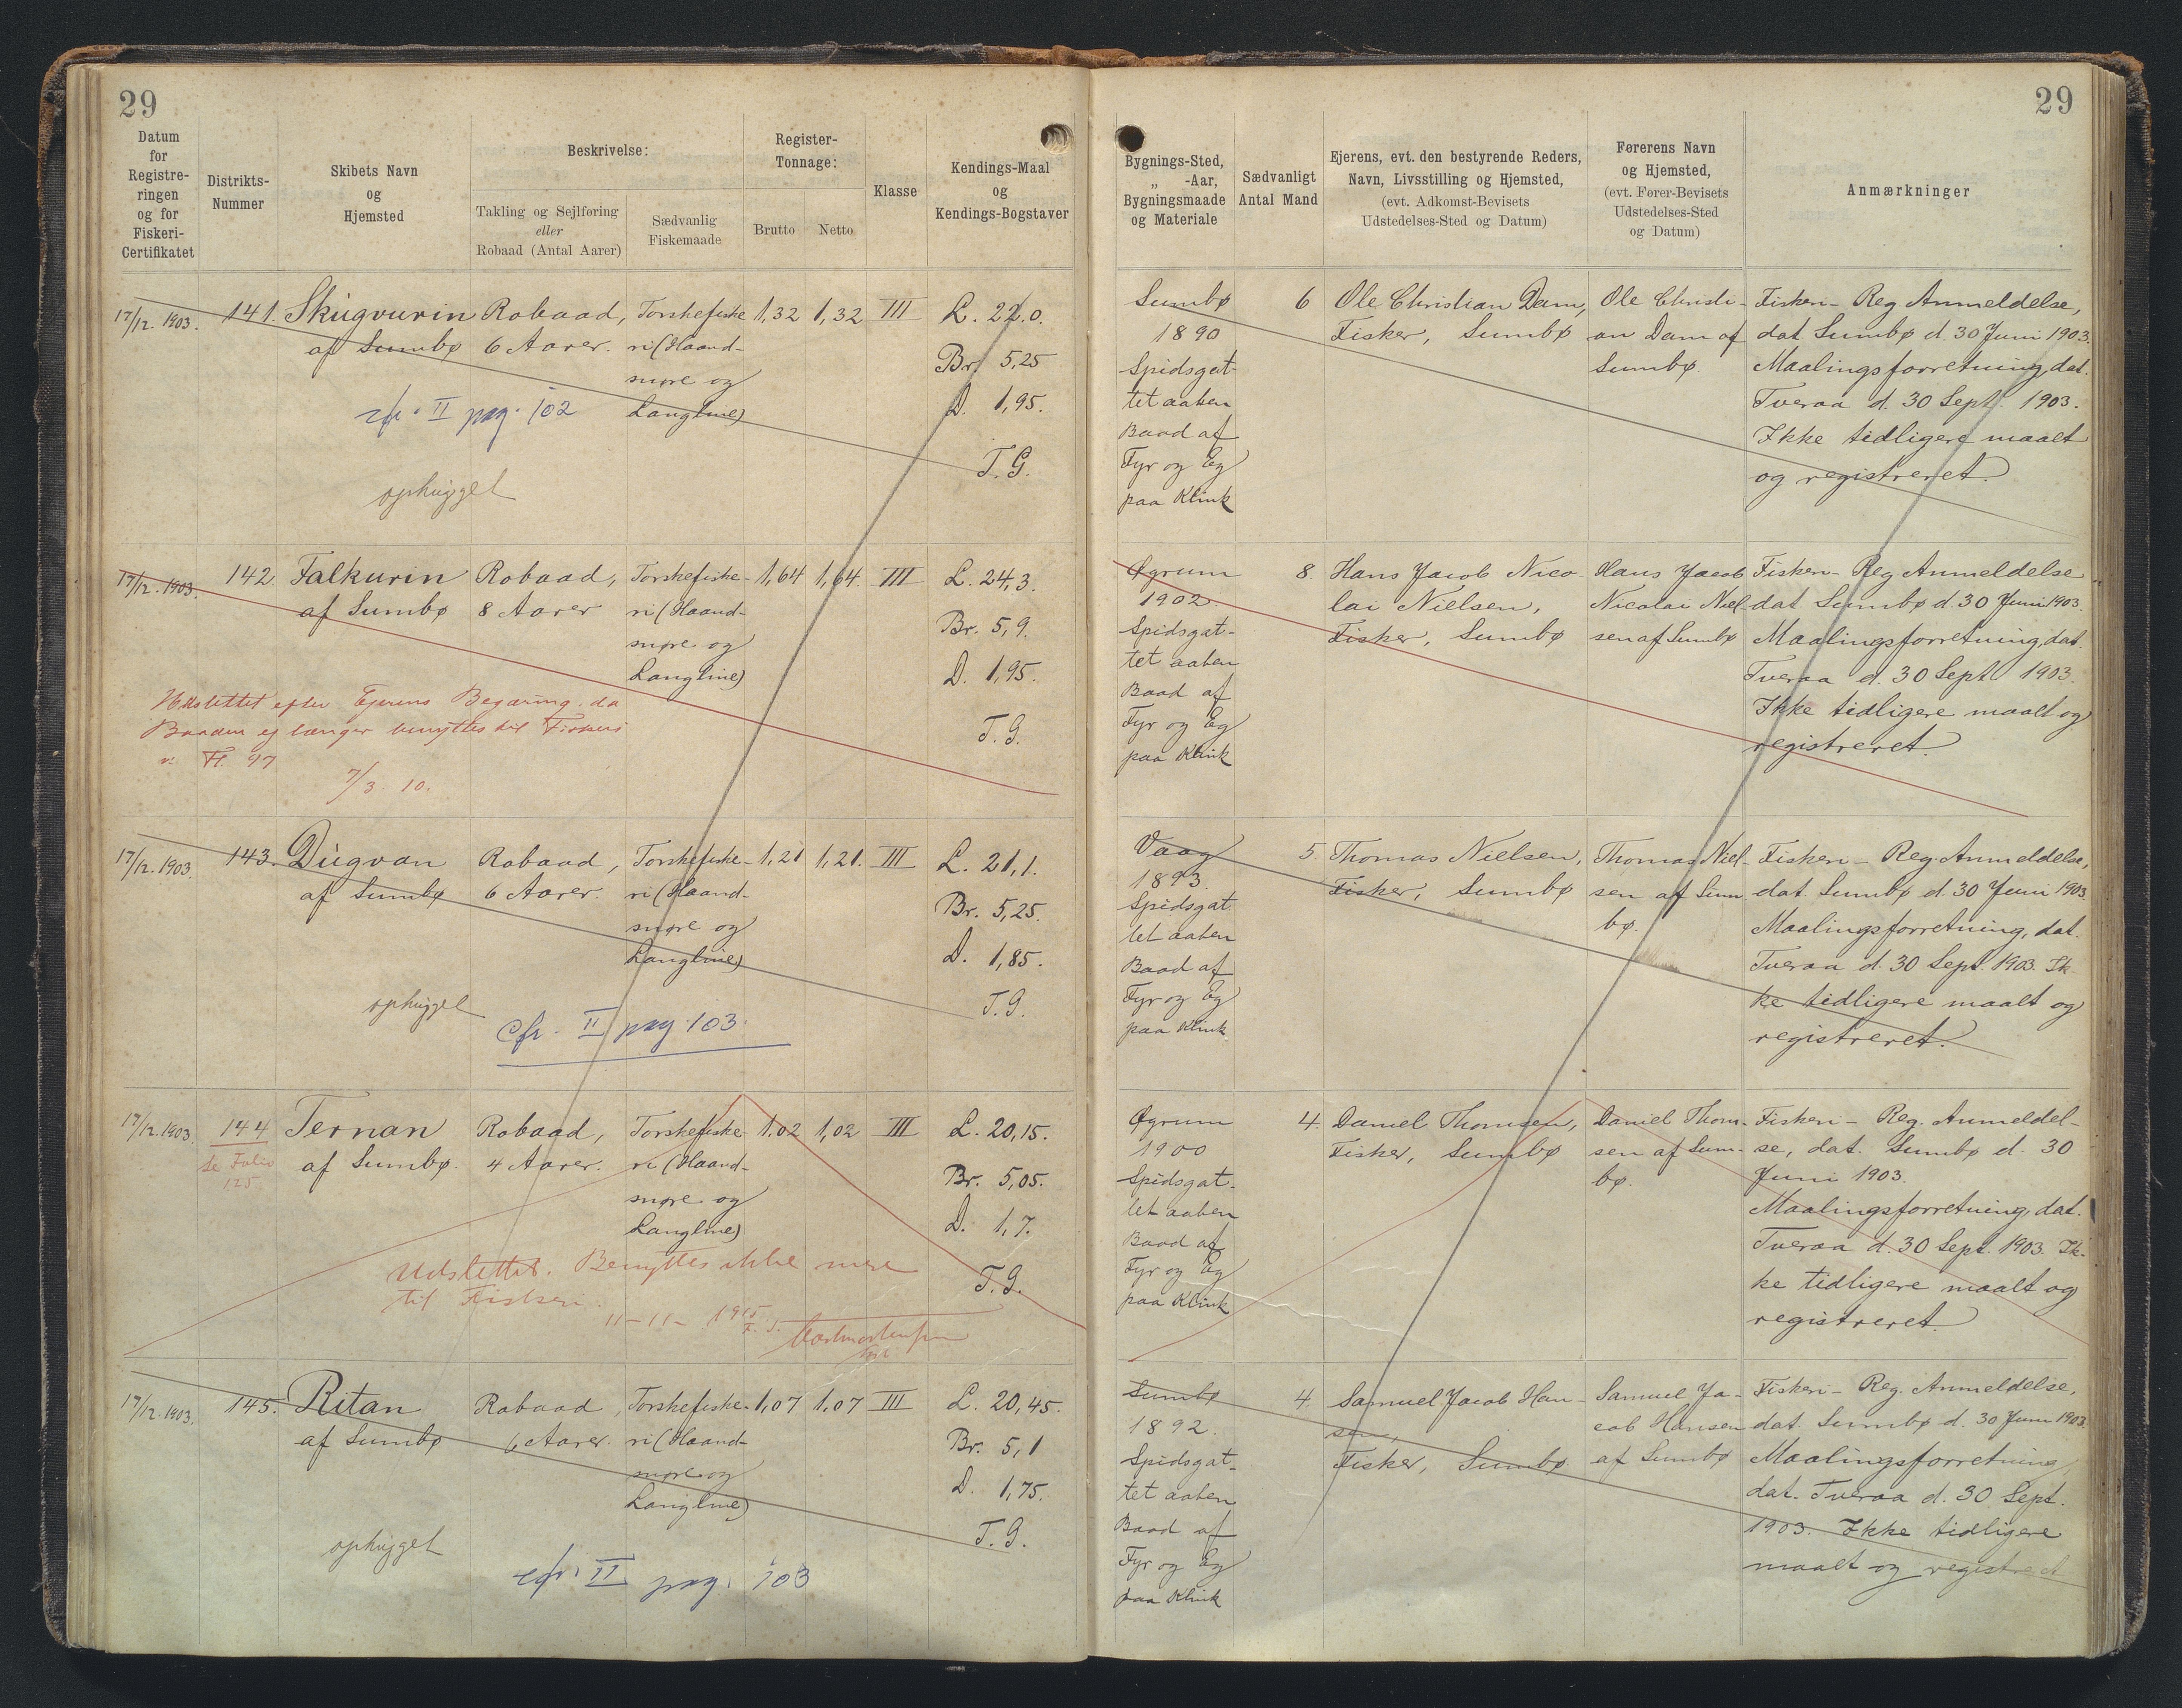 29
29
Datum
for
Registre-
ringen
og for
Fiskeri-
Certifikatet
Distrikts-
Nummer
Skibets Navn
og
Hjemsted
Beskrivelse:
Takling og Sejlføring
eller
Robaad (Antal Aarer)
Sædvanlig
Fiskemaade
Register-
Tonnage:
Brutto
Netto
Klasse
Kendings-Maal
og
Kendings-Bogstaver
Bygnings-Sted,
„ -Aar,
Bygningsmaade
og Materiale
Sædvanligt
Antal Mand
Ejerens, evt. den bestyrende Reders,
Navn, Livsstilling og Hjemsted,
(evt. Adkomst-Bevisets
Udstedelses-Sted og Datum)
Førerens Navn
og Hjemsted,
(evt. Fører-Bevisets
Udstedelses-Sted
og Datum)
Anmærkninger
17/12. 1903.
141.
Skúgvurin
af Sumbø
Robaad,
6 Aarer.
Torskefiske
ri (Haand-
snøre og
Langline)
1,32
1,32
III
L. 22.0.
Br. 5,25
D. 1,95.
T. G.
cfr. II pag. 102
ophugget
Sumbø
1890
Spidsgat-
tet aaben
Baad af
Fyr og Eg
paa Klink
6
Ole Christian Dam,
Fisker, Sumbø
Ole Christi-
an Dam af
Sumbø
Fiskeri- Reg. Anmeldelse,
dat. Sumbø d. 30 Juni 1903.
Maalingsforretning, dat.
Tveraa d. 30 Sept. 1903.
Ikke tidligere maalt
og registreret.
17/12. 1903.
142.
Falkurin
af Sumbø
Robaad,
8 Aarer
Torskefiske-
ri (Haand-
snøre og
Langline)
1,64
1,64.
III
L. 24,3.
Br. 5,9.
D. 1,95.
T. G.
Udslettet efter Ejerens Begæring, da
Baaden ej længer benyttes til Fiskeri
v. Fl. 97
7/3 10.
Øgrum
1902.
Spidsgat-
tet aaben
Baad af
Fyr og Eg
paa Klink
8.
Hans Jacob Nico-
lai Nielsen,
Fisker, Sumbø
Hans Jacob
Nicolai Niel-
sen af Sumbø
Fiskeri- Reg. Anmeldelse
dat. Sumbø d. 30 Juni 1903.
Maalingsforretning, dat.
Tveraa d. 30 Sept. 1903.
Ikke tidligere maalt og
registreret.
17/12. 1903.
143.
Dúgvan
af Sumbø
Robaad,
6 Aarer.
Torskefiske-
ri (Haand-
snøre og
Langline)
1,21
1,21.
III
L. 21,1.
Br. 5,25.
D. 1,85.
T. G.
ophugget
Cfr. II pag. 103.
Vaag
1893.
Spidsgat
tet aaben
Baad af
Fyr og Eg
paa Klink
5.
Thomas Nielsen,
Fisker, Sumbø
Thomas Niel-
sen af Sum
bø.
Fiskeri- Reg. Anmeldelse,
dat. Sumbø d. 30 Juni 1903.
Maalingsforretning, dat.
Tveraa d. 30 Sept. 1903. Ik
ke tidligere maalt og
registreret.
17/12. 1903.
144
Se Folio
125.
Ternan
af Sumbø.
Robaad,
4 Aarer.
Torskefiske
ri (Haand-
snøre og
Langline)
1.02
1,02
III
L. 20,15.
Br. 5,05.
D. 1,7.
T. G.
Udslettet. Benyttes ikke mere
til Fiskeri.
11-11- 1915
Øgrum
1900
Spidsgat-
tet aaben
Baad af
Fyr og Eg
paa Klink
4.
Daniel Thomsen,
Fisker, Sumbø
Daniel Thom-
sen af Sum-
bø.
Fiskeri- Reg. Anmeldel-
se, dat. Sumbø d. 30
Juni 1903.
Maalingsforretning, dat.
Tveraa d. 30 Sept. 1903. Ik-
ke tidligere maalt og
registreret.
17/12. 1903.
145.
Ritan
af Sumbø
Robaad,
6 Aarer.
Torskefiske-
ri (Haand-
snøre og
Langline)
1,07
1,07
III
L. 20,45.
Br. 5,1
D. 1,75.
T. G.
ophugget
cfr. II pag. 103
Sumbø
1892.
Spidsgat-
tet aaben
Baad af
Fyr og Eg
paa Klink
4.
Samuel Jacob Han-
sen,
Fisker, Sumbø
Samuel Ja-
cob Hansen
af Sumbø
Fiskeri- Reg. Anmeldelse,
dat. Sumbø d. 30 Juni 1903.
Maalingsforretning,
dat. Tveraa d. 30 Sept.
1903. Ikke tidligere
maalt og registreret